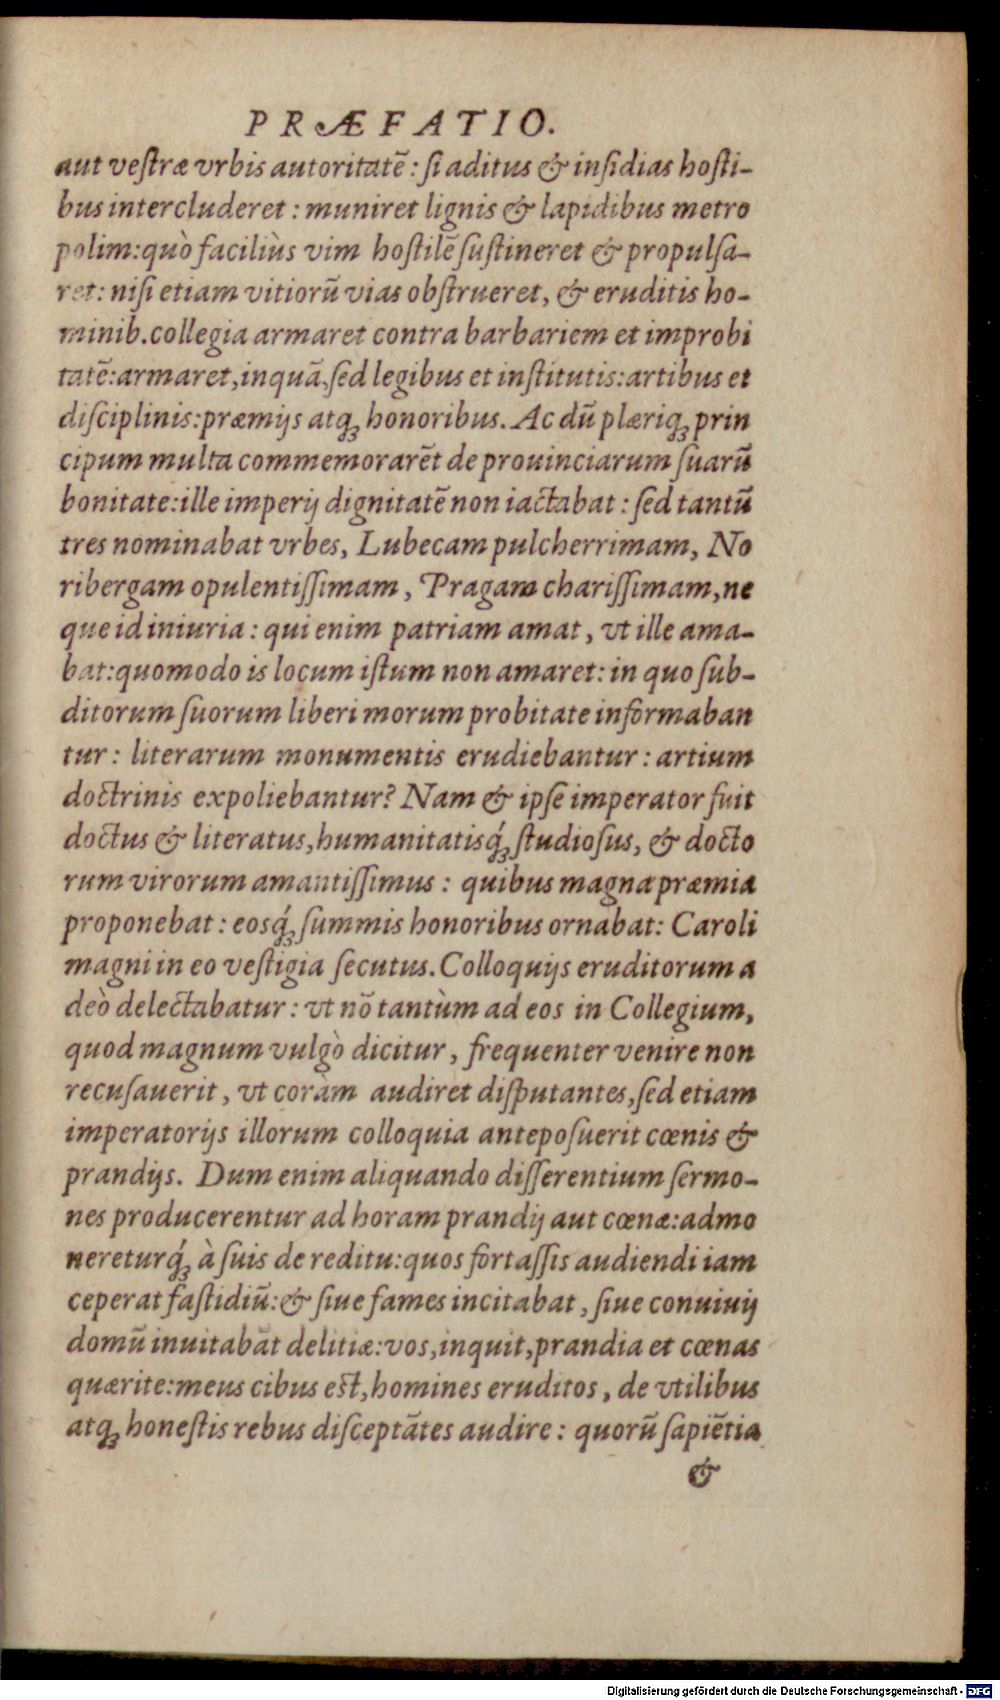 PRÆFATIO.
aut vestræ vrbis autoritatē: si aditus & insidias hosti-
bus intercluderet: muniret lignis & lapidibus metro
polim: quò faciliùs vim hostilē sustineret & propulsa-
ret: nisi etiam vitiorū vias obstrueret, & eruditis ho-
minib. collegia armaret contra barbariem et improbi
tatē: armaret, inquā, sed legibus et institutis: artibus et
disciplinis: præmijs atq; honoribus. Ac dū plæriq; prin
cipum multa commemorarēt de prouinciarum suarū
bonitate: ille imperij dignitatē non iactabat: sed tantū
tres nominabat vrbes, Lubecam pulcherrimam, No
ribergam opulentissimam, Pragam charissimam, ne
que id iniuria: qui enim patriam amat, vt ille ama-
bat: quomodo is locum istum non amaret: in quo sub-
ditorum suorum liberi morum probitate informaban
tur: literarum monumentis erudiebantur: artium
doctrinis expoliebantur? Nam & ipse imperator fuit
doctus & literatus, humanitatisq́; studiosus, & docto
rum virorum amantissimus: quibus magna præmia
proponebat: eosq́; summis honoribus ornabat: Caroli
magni in eo vestigia secutus. Colloquijs eruditorum a
deò delectabatur: vt nō tantùm ad eos in Collegium,
quod magnum vulgò dicitur, frequenter venire non
recusauerit, vt coràm audiret disputantes, sed etiam
imperatorijs illorum colloquia anteposuerit cœnis &
prandijs. Dum enim aliquando disserentium sermo-
nes producerentur ad horam prandij aut cœnæ: admo
nereturq́; à suis de reditu: quos fortassis audiendi iam
ceperat fastidiū: & siue fames incitabat, siue conuiuij
domū inuitabāt delitiæ: vos, inquit, prandia et cœnas
quærite: meus cibus est, homines eruditos, de vtilibus
atq; honestis rebus disceptātes audire: quorū sapiētia
&
Digitalisierung gefördert durch die Deutsche Forschungsgemeinschaft - DFG